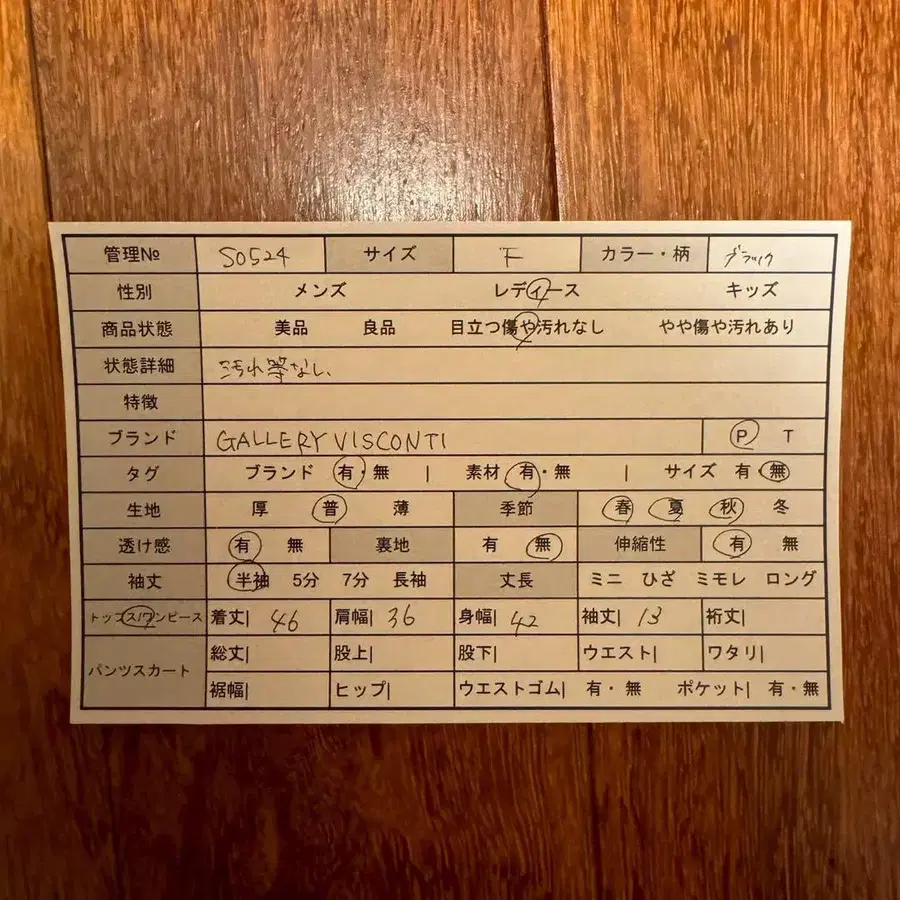 管理№ S0524 サイズ F カラー・柄 ブラック
性別 メンズ レディース キッズ
商品状態 美品 良品 目立つ傷や汚れなし やや傷や汚れあり
状態詳細 汚れ等なし、
特徴
ブランド GALLERY VISCONTI P T
タグ ブランド 有・無 | 素材 有・無 | サイズ 有・無
生地 厚 普 薄 季節 春 夏 秋 冬
透け感 有 無 裏地 有 無 伸縮性 有 無
袖丈 半袖 5分 7分 長袖 丈長 ミニ ひざ ミモレ ロング
トップス/ワンピース 着丈| 46 肩幅| 36 身幅| 42 袖丈| 13 裄丈|
パンツスカート 総丈| 股上| 股下| ウエスト| ワタリ|
裾幅| ヒップ| ウエストゴム| 有・無 ポケット| 有・無